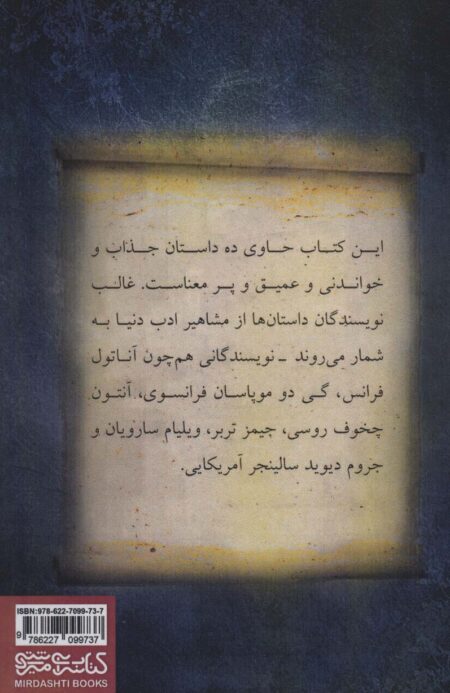 این کتاب حاوی ده داستان جذاب و
خواندنی و عمیق و پر معناست. غالب
نویسندگان داستان‌ها از مشاهیر ادب دنیا به
شمار می‌روند ـ نویسندگانی هم‌چون آناتول
فرانس، گی دو موپاسان فرانسوی، آنتون
چخوف روسی، جیمز تربر، ویلیام سارویان و
جروم دیوید سالینجر آمریکایی.
ISBN: 978-622-7099-73-7
9 786227 099737
کتابسرای میردشتی
MIRDASHTI BOOKS